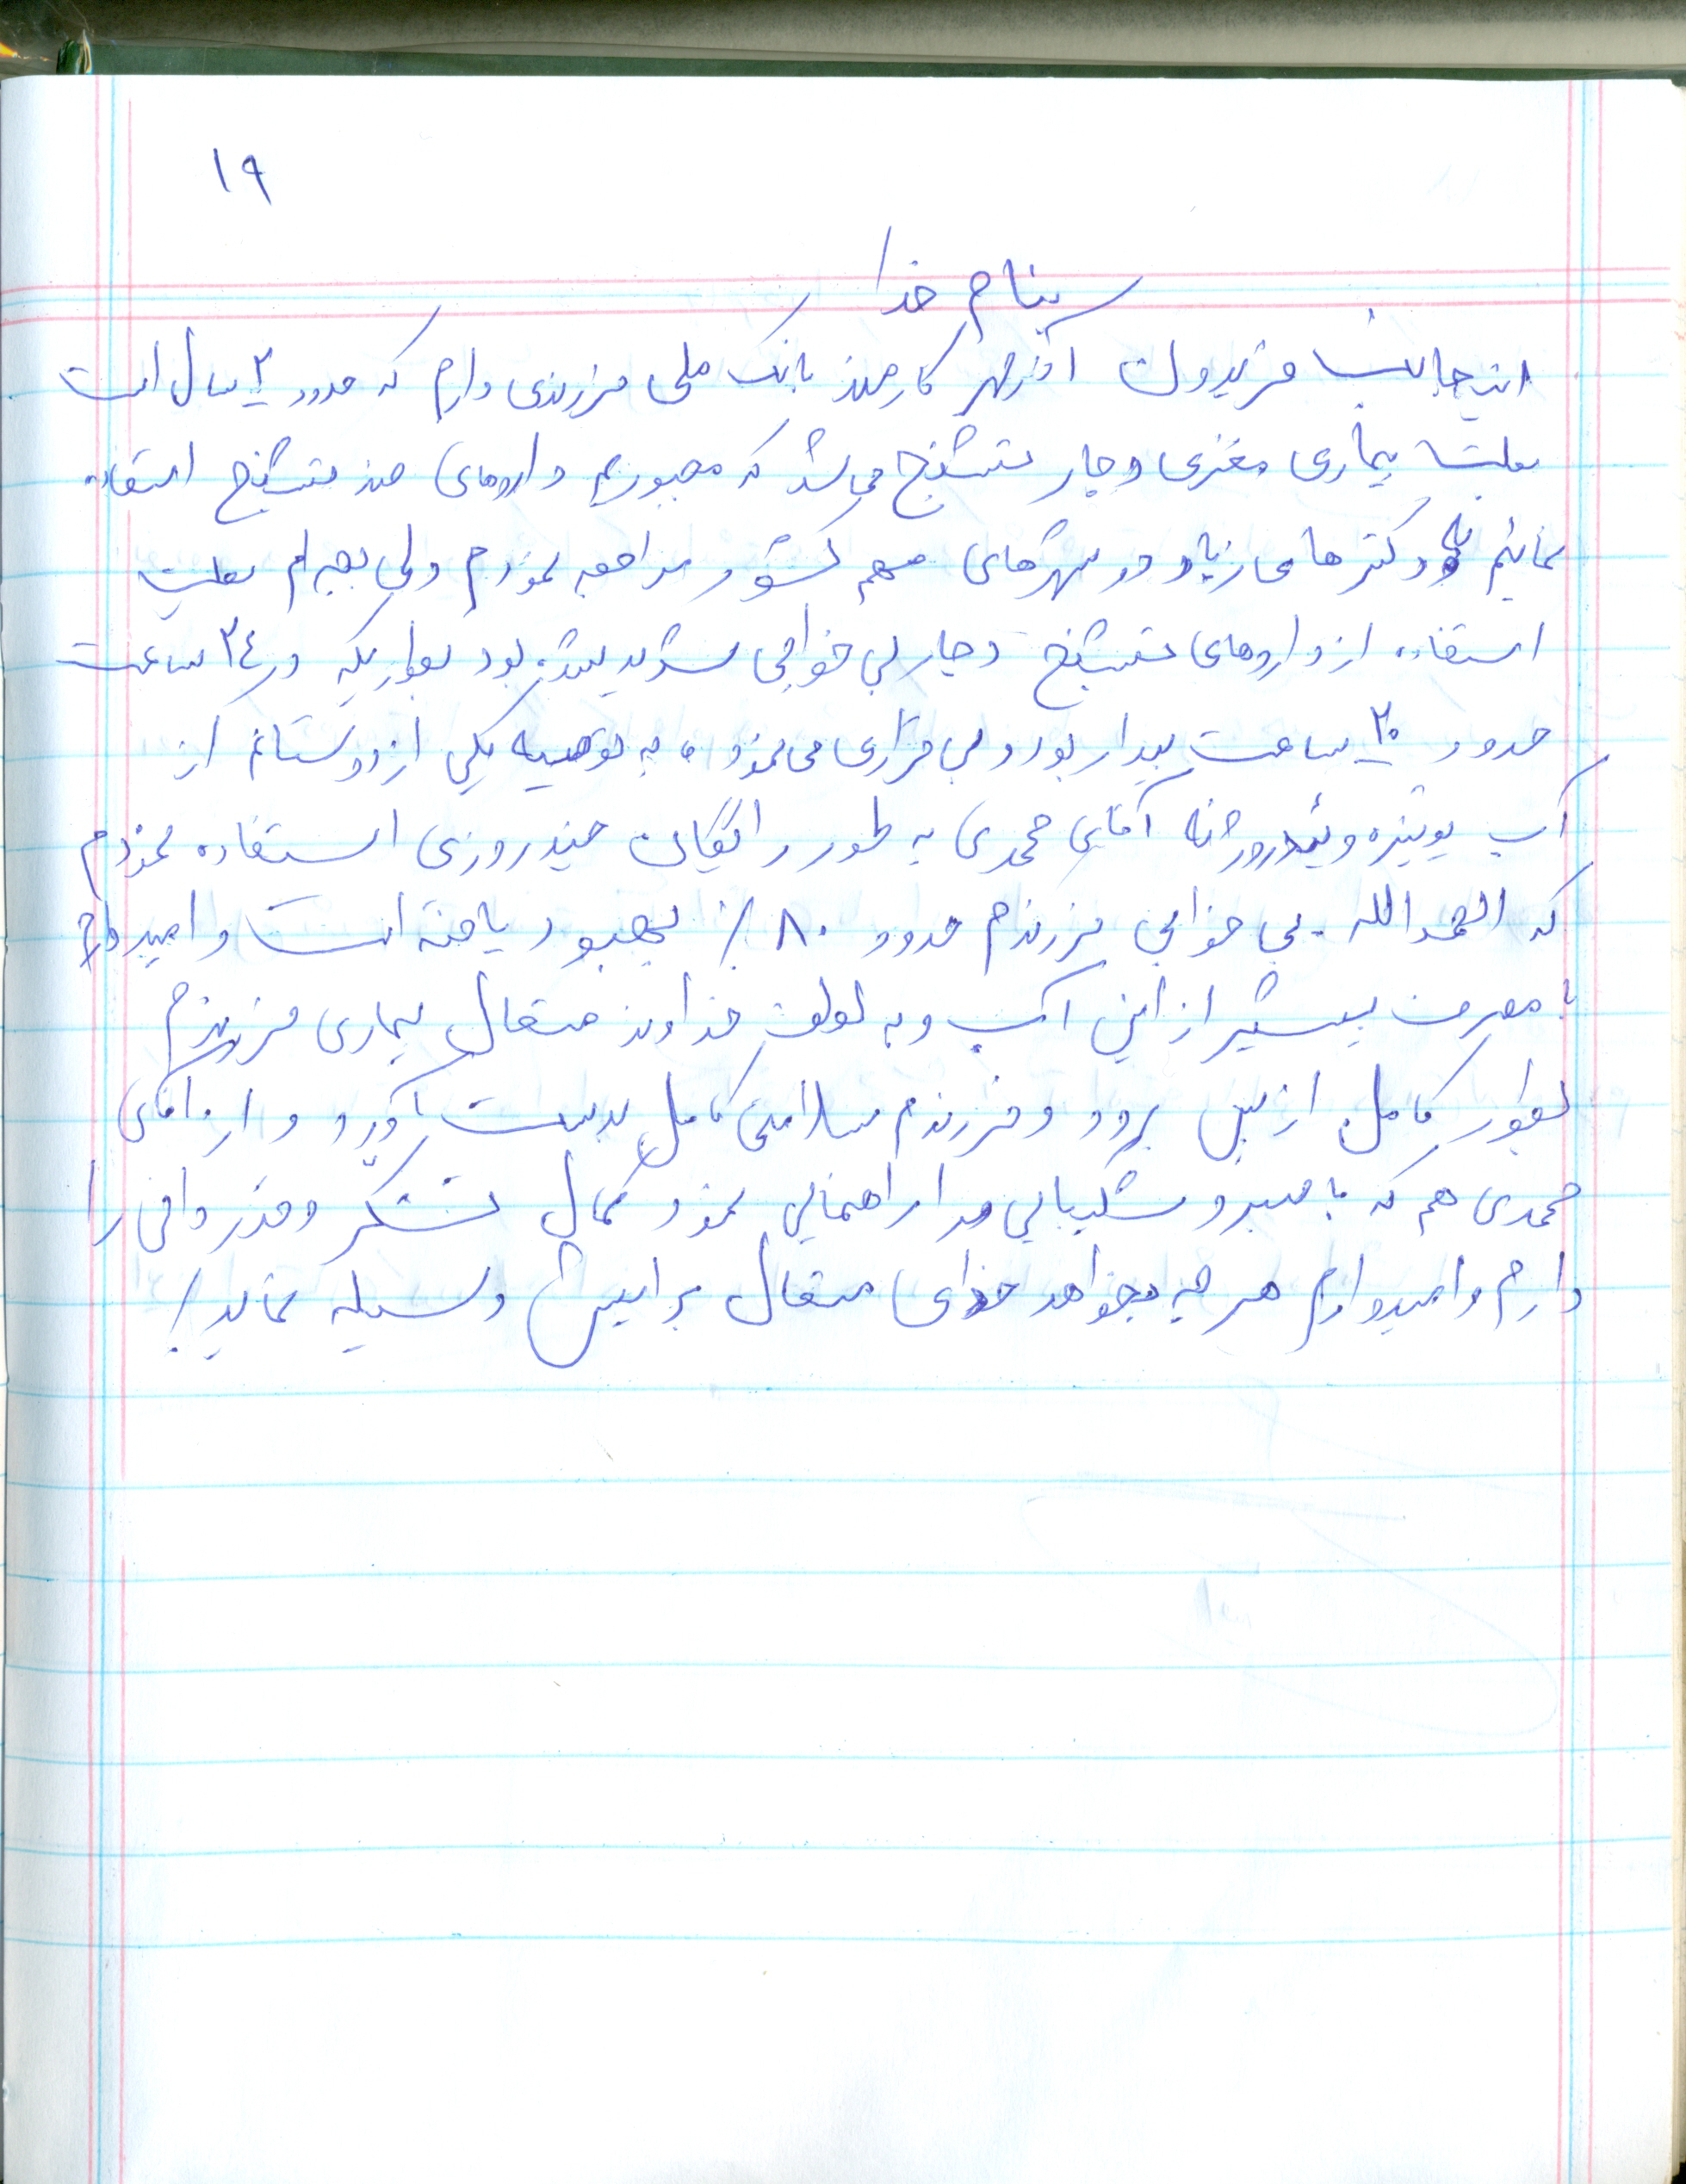 ۱۹
بنام خدا
اینجانب فریدون آذرمهر کارمند بانک ملی فرزندی دارم که حدود ۲ سال است
بعلت بیماری مغزی دچار تشنج می‌شد که مجبوریم داروهای ضد تشنج استفاده
نمائیم دکترهای زیاد در شهرهای مهم کشور مراجعه نمودم ولی بچه‌ام بعلت
استفاده از داروهای تشنج دچار بی خوابی شدید شده بود بطوریکه در ۲٤ ساعت
حدود ۲۰ ساعت بیدار بود و بی قراری می‌نمود، به توصیه یکی از دوستانم از
آب یونیزه آقای محمدی به طور رایگان چند روزی استفاده نمودم
که الحمدالله بی خوابی فرزندم حدود ۸۰٪ بهبود یافته است و امیدوارم
با مصرف بیشتر از این آب و به لطف خداوند متعال بیماری فرزندم
بطور کامل از بین برود و فرزندم سلامتی کامل بدست آورد و از آقای
محمدی هم که با صبر و شکیبایی مرا راهنمایی نمود کمال تشکر و قدردانی را
دارم و امیدوارم هر چه بخواهد خدای متعال برایش وسیله نماید./